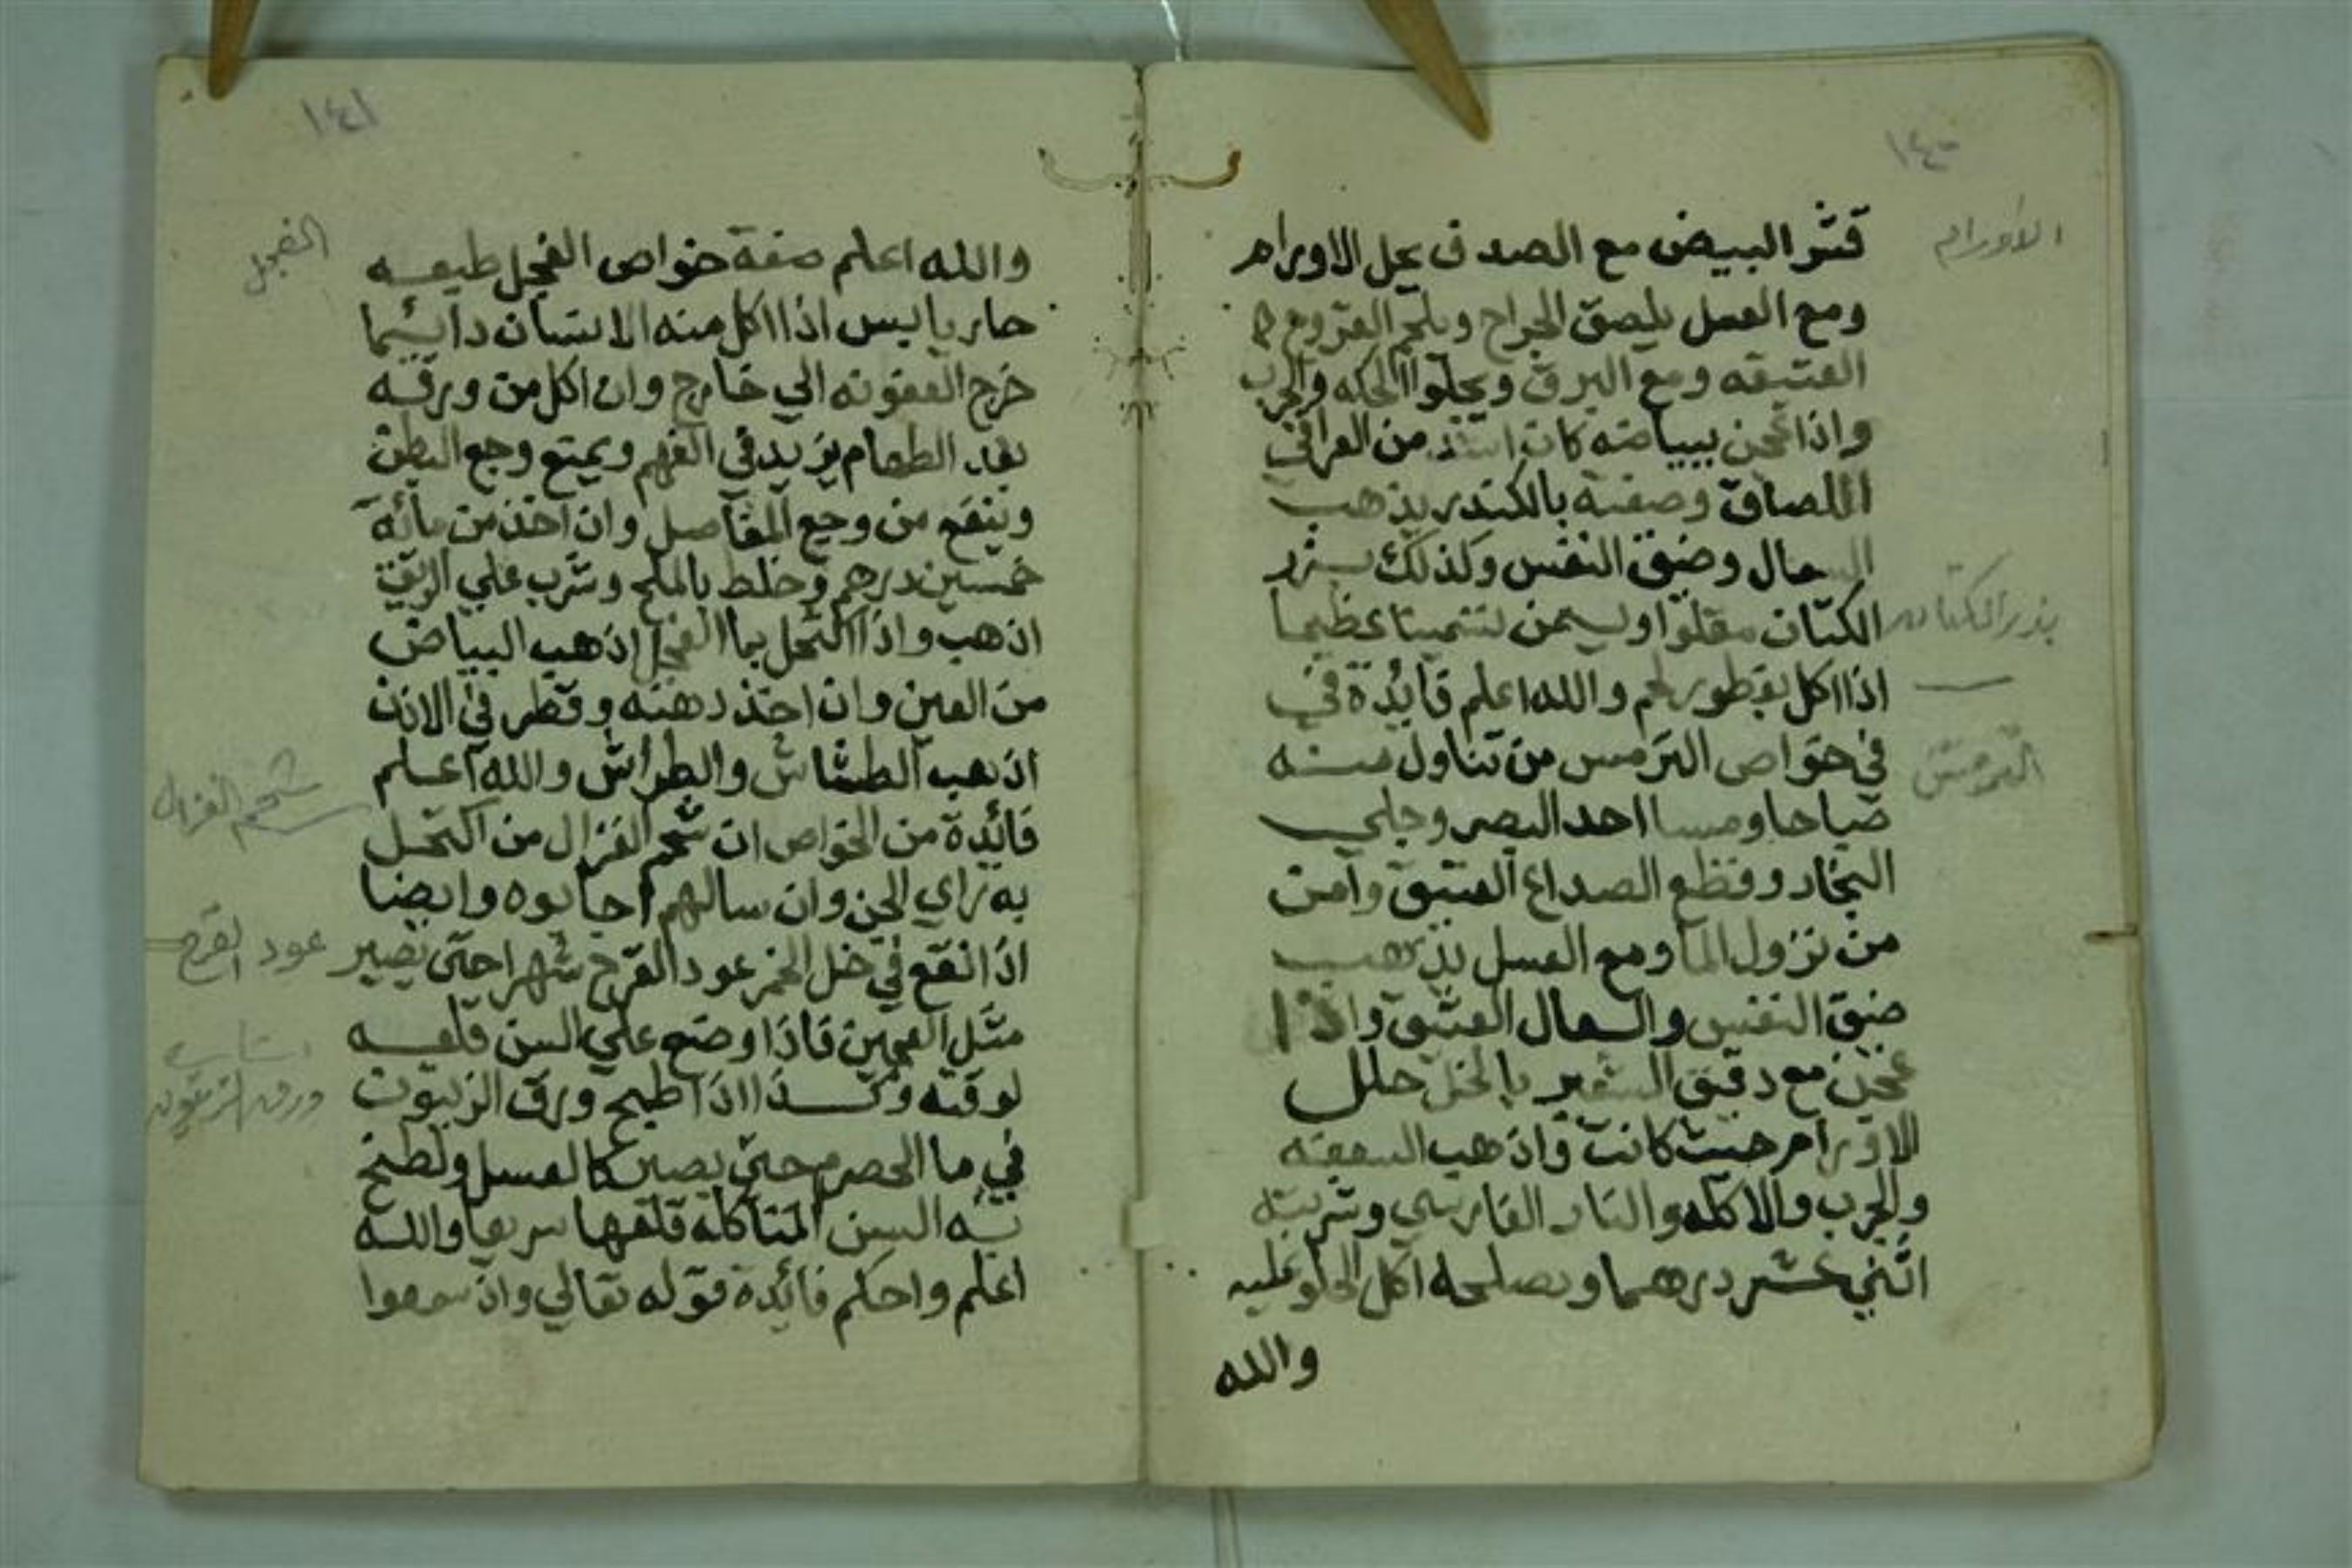 ١٤٠
الاورام
قشر البيض مع الصدف يحل الاورام
ومع العسل يلصق الجراح ويلحم القروح
العتيقه ومع البرق ويجلوا الحكه والجرب
واذا عجن ببياضه كان اشد من الغرافي
اللصاق وصفته بالكندر يذهب
السعال وضيق النفس وكذلك بزر
الكتان مقلوا ويسمن تسمينا عظيما
بذر الكتان
اذا اكل بفطور لحم والله اعلم فايدة في
في خواص الترمس من تناول منه
الترمس
صباحا ومسا احد البصر وجلي
البخار وقطع الصداع العتيق وامن
من نزول الما ومع العسل يذهب
ضيق النفس والسعال العتيق واذا
عجن مع دقيق الشعير بالخل حلل
الاورام حيث كانت واذهب السعفه
والجرب والاكله والنار الفارسي وشربته
اثني عشر درهما ويصلحه اكل الحلو عليه
والله
١٤١
والله اعلم صفة خواص الفجل طبعه
الفجل
حار يابس اذا اكل منه الانسان دائما
خرج العفونه الي خارج وان اكل من ورقه
بعد الطعام يزيد في الفهم ويمنع وجع البطن
وينفع من وجع المفاصل وان اخذ من مائه
خمسين درهم وخلط بالملح وشرب علي الريق
اذهب واذا اكتحل بما الفجل اذهب البياض
من العين وان اخذ دهنه وقطر في الاذن
اذهب الطشاش والطراش والله اعلم
شحم الغزال
فائدة من الخواص ان شحم الغزال من اكتحل
به راي الجن وان سالهم اجابوه وايضا
اذا نقع في خل الخمر عود القرح شهرا حتى يصير
عود القرح
مثل العجين فاذا وضع علي السن قلعه
لوقته وكذا اذا طبخ ورق الزيتون
ورق الزيتون
في ما الحصرم حتي يصير كالعسل ولطخ
به السن المتاكله قلعها سريعا والله
اعلم واحكم فائدة قوله تعالي واذ سمعوا